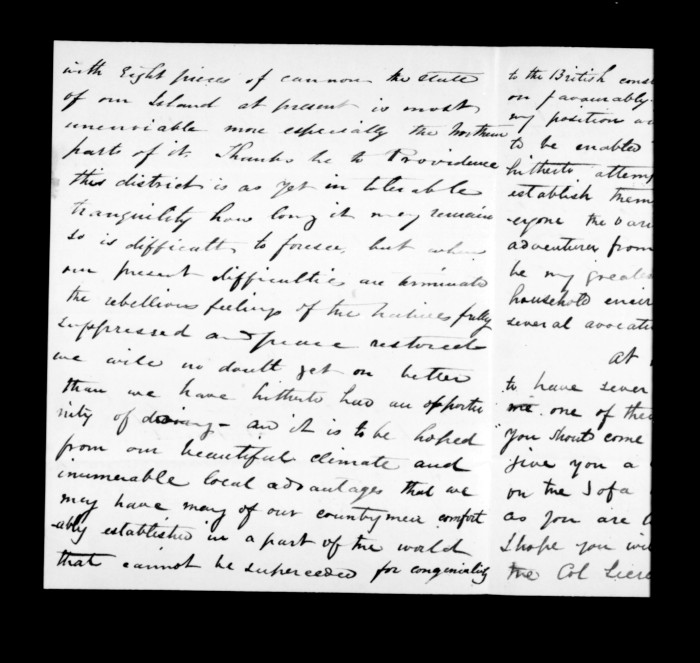 with Eight pieces of cannon the state
of our Island at present is most
unenviable more especially the Northern
parts of it. Thanks be to Providence
this district is as yet in tolerable
tranquility how long it may remain
so is difficult to foresee, but when
our present difficulties are terminate
the rebellious feelings of the natives fully
suppressed and peace restored
we will no doubt get on better
than we have hitherto had an opportu
nity of doing - and it is to be hoped
from our beautiful climate and
inumerable local advantages that we
may have many of our countrymen comfort
-ably established in a part of the world
that cannot be superceeded for congeniality
to the British cons
on favourably
my position an
to be enabled
hitherto attemp
establish them
the
adventurer from
be my greate
household
several avocati
at
to have sever
one of the
"You should come
give you a
on the Sofa
as you are
I hope you wi
the Col